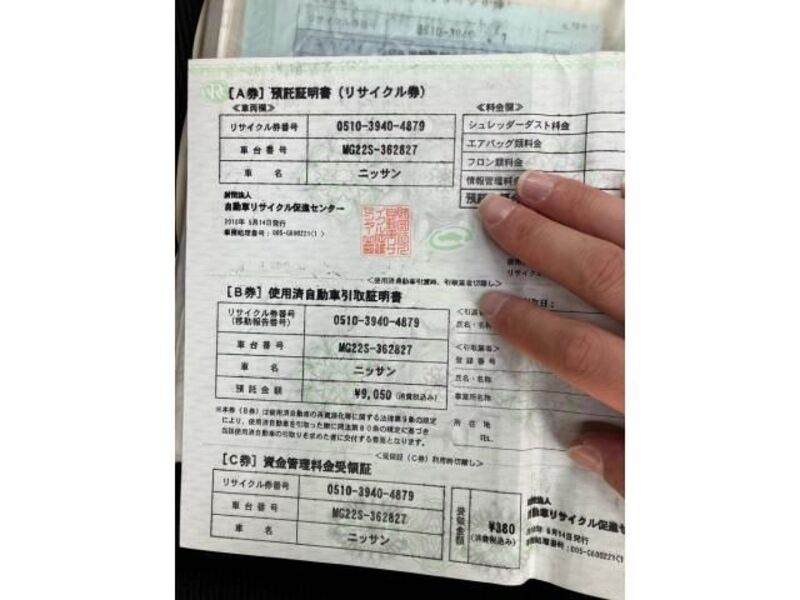 [A券] 預託証明書 (リサイクル券)
≪車両欄≫
リサイクル券番号 0510-3940-4879
車台番号 MG22S-362827
車名 ニッサン
≪料金欄≫
シュレッダーダスト料金
エアバッグ類料金
フロン類料金
情報管理料金
財団法人
自動車リサイクル促進センター
2010年 5月14日発行
<使用済自動車引渡時、引取業者切離し>
[B券] 使用済自動車引取証明書
リサイクル券番号 (移動報告番号) 0510-3940-4879
車台番号 MG22S-362827
車名 ニッサン
預託金額 ¥9,050 (消費税込み)
※本券 (B券) は使用済自動車の再資源化等に関する法律第9条の規定
により、使用済自動車を引取った際に同法第80条の規定に基づき
当該使用済自動車の引取りを求めた者に交付する書面となります。
引取日:
氏名・名称
登録番号
氏名・名称
事業所名称
所在地
TEL.
<受領証 (C券) 利用時切離し>
[C券] 資金管理料金受領証
リサイクル券番号 0510-3940-4879
車台番号 MG22S-362827
車名 ニッサン
受領金額 ¥380 (消費税込み)
財団法人
自動車リサイクル促進セ
5月14日発行